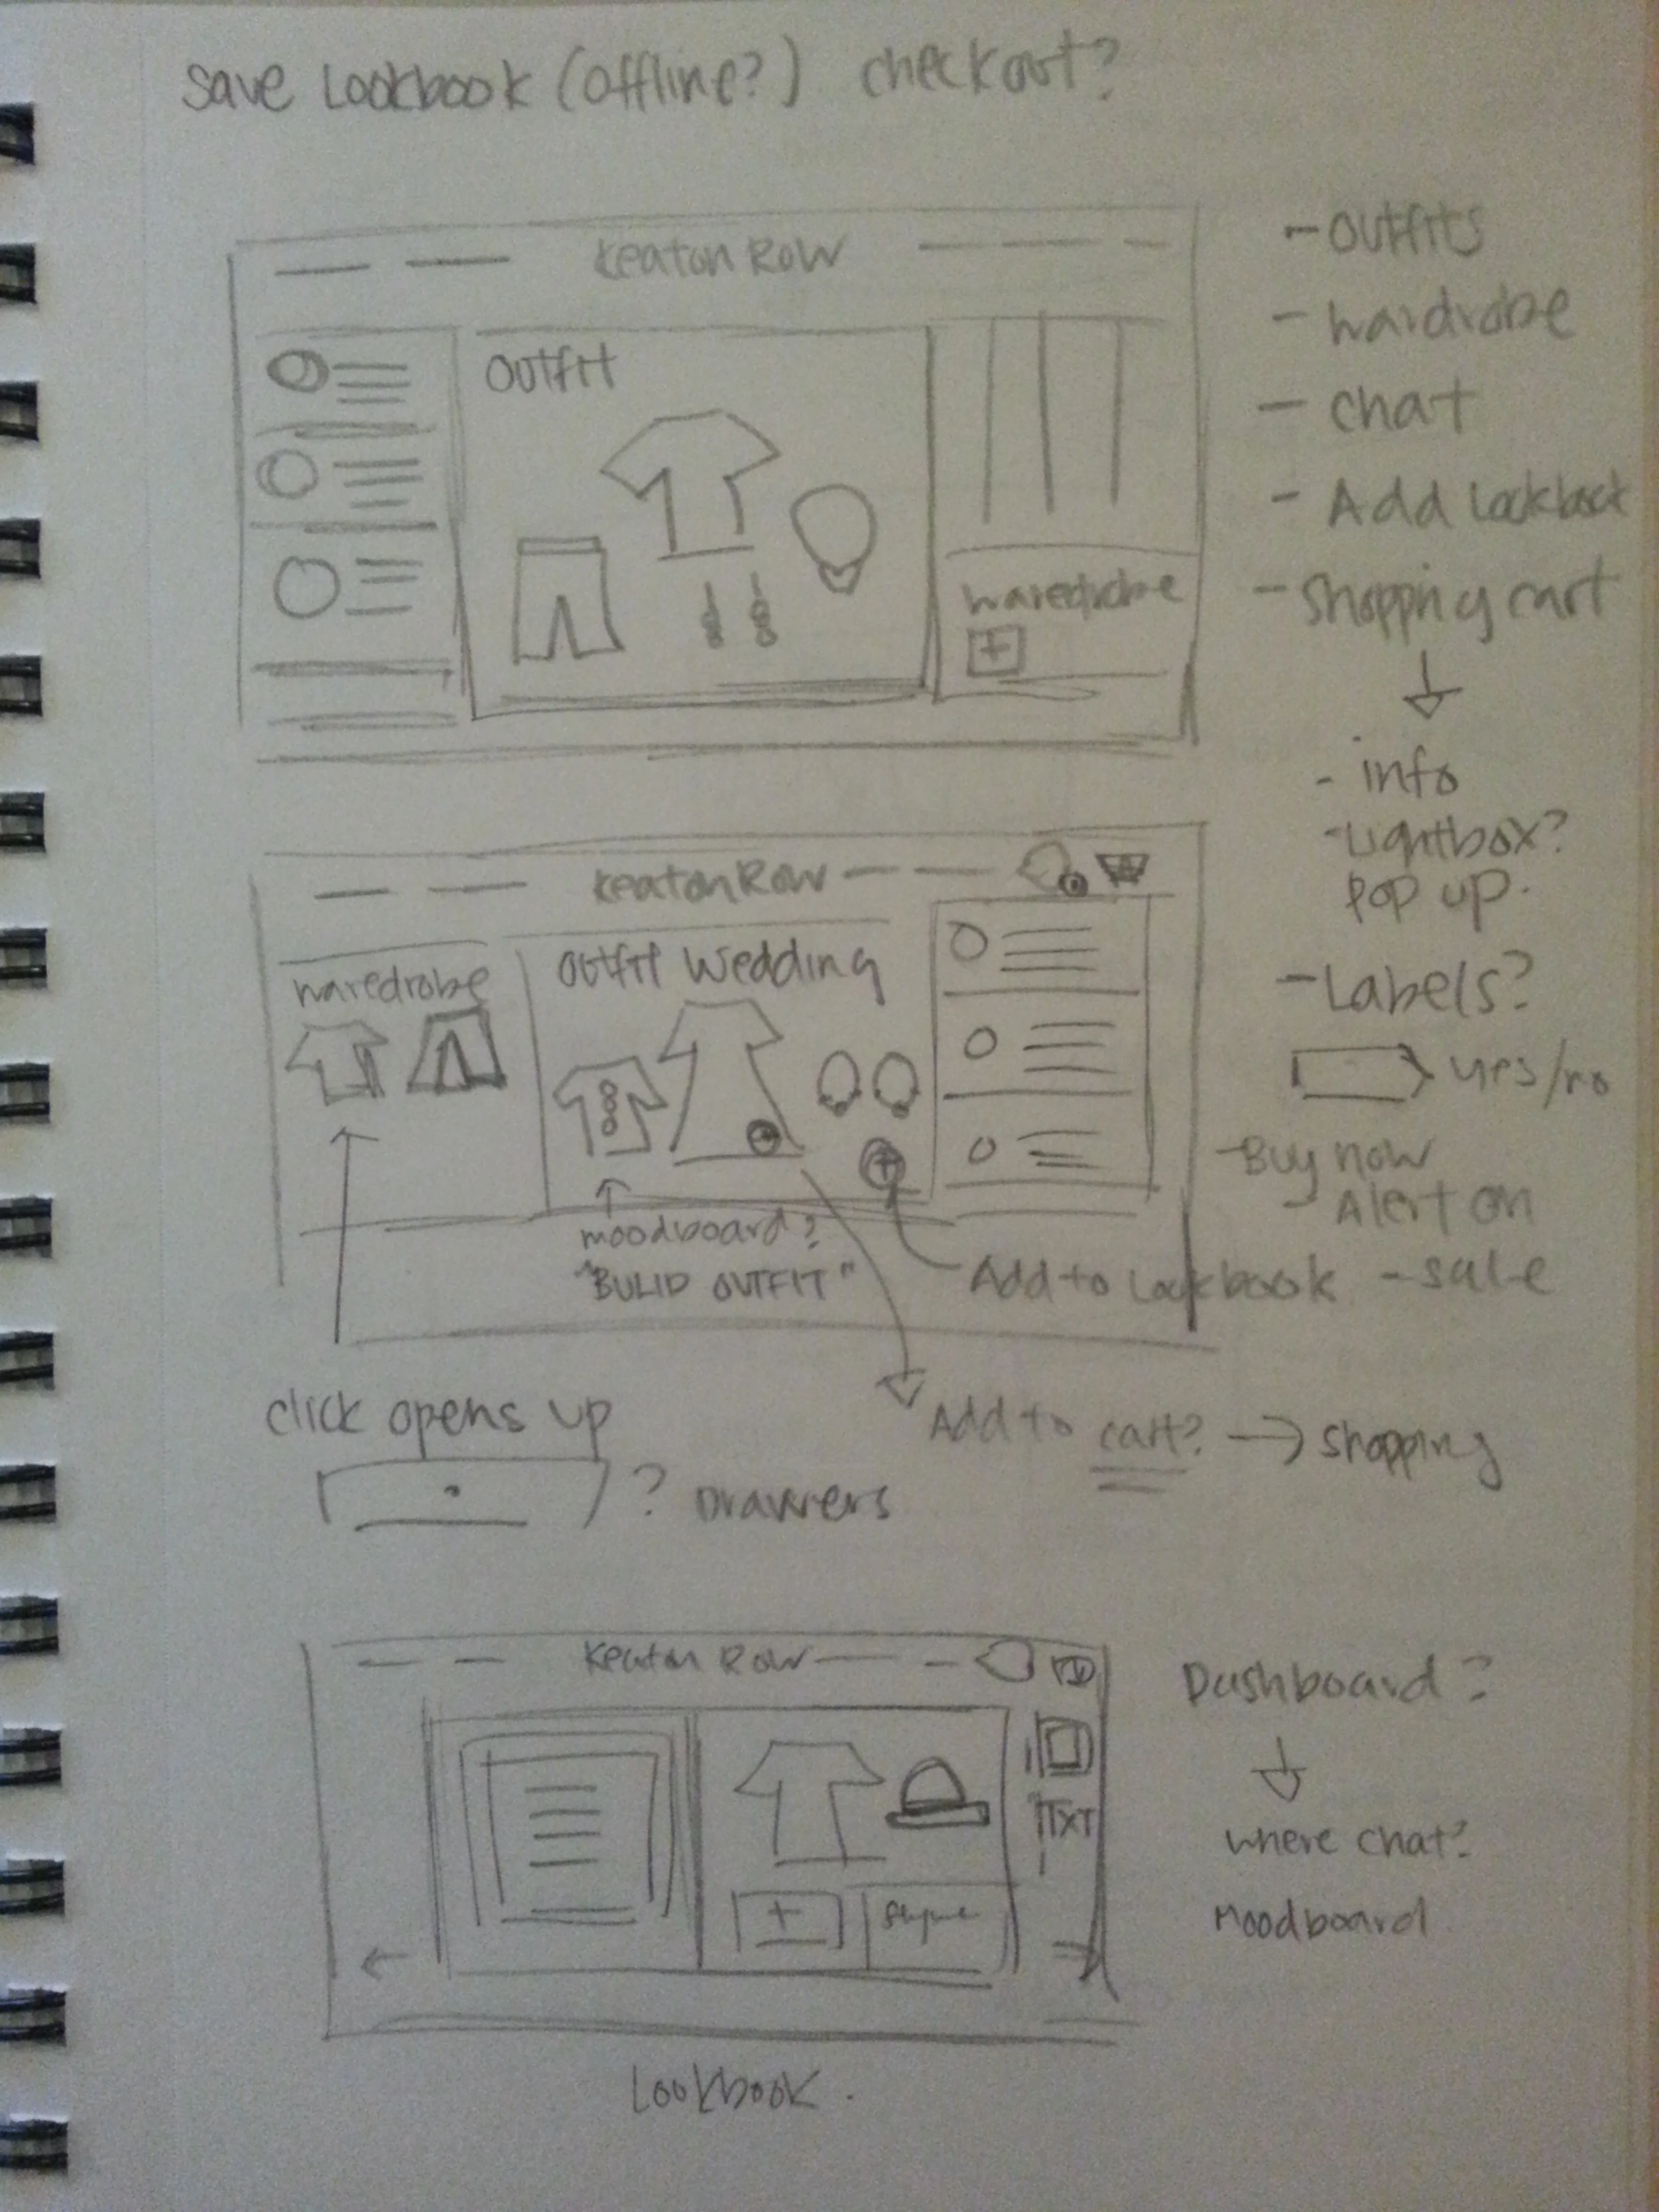 save Lookbook (offline?) checkout?
Keaton Row
OUTFIT
waredrobe
+
- OUTfITS
- wardrobe
- chat
- Add Lookbook
- Shopping cart
- info
- Lightbox?
pop up.
- Labels?
yes/no
- Buy now
Alert on
- sale
Keaton Row
waredrobe
OUTfIT Wedding
+
moodboard?
"BULID OUTFIT"
Add to Lookbook
click opens up
? Drawers
Add to cart? → shopping
Keaton Row
TXT
+
Dashboard?
where chat?
Moodboard
Lookbook.